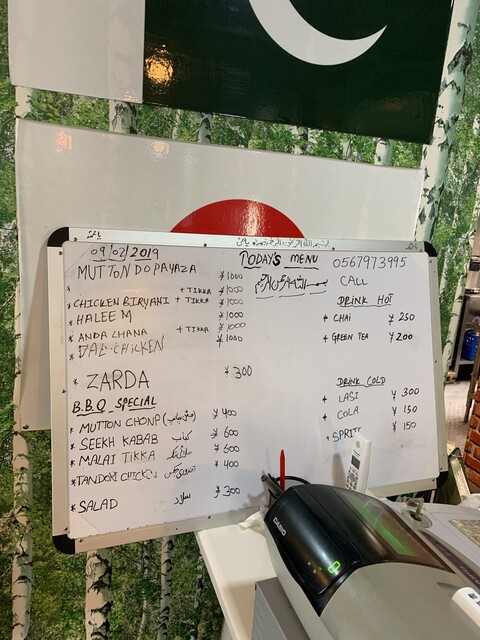 بسم الله الرحمن الرحيم
09/02/2019
TODAY'S MENU
0567973995
CALL
MUTTON DOPAYAZA ¥1000
* + TIKKA ¥1000
* CHICKEN BIRYANI + TIKKA ¥1000
* HALEEM ¥1000
* ANDA CHANA + TIKKA ¥1000
* DAL CHICKEN ¥1000
* ZARDA ¥300
B.B.Q SPECIAL
* MUTTON CHONP ¥400
* SEEKH KABAB کباب ¥600
* MALAI TIKKA ¥600
* TANDORI CHICKEN ¥400
* SALAD سلاد ¥300
DRINK HOT
+ CHAI ¥250
+ GREEN TEA ¥200
DRINK COLD
+ LASI ¥300
+ COLA ¥150
+ SPRITE ¥150
CASIO